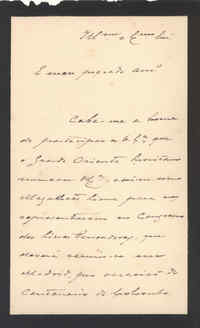 Ill.mo e Ex.mo Snr
E meu presado am.º
Cabe-me a honra
de participar a V. Ex.ª que
o Grande Oriente Lusitano
nomeou V. Ex.ª, assim como
Magalhães Lima para nos
representarem no Congresso
dos Livres Pensadores, que
deverá reunir-se em
Madrid, por occasião do
Centenario de Colombo